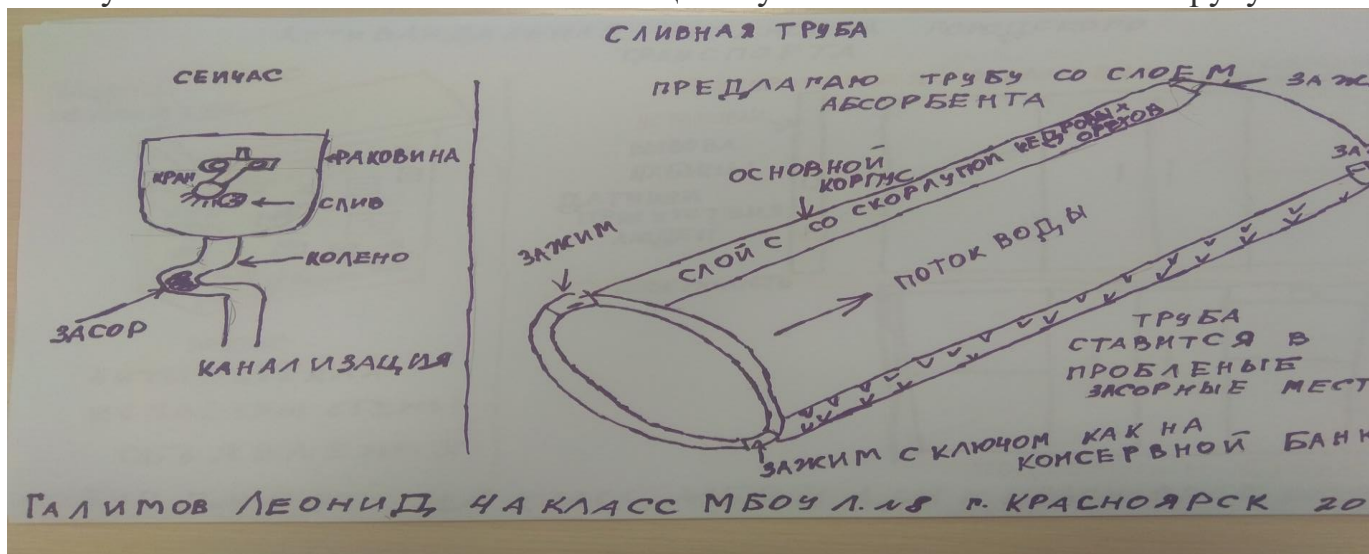 СЛИВНАЯ ТРУБА
СЕЙЧАС
КРАН
РАКОВИНА
СЛИВ
КОЛЕНО
ЗАСОР
КАНАЛИЗАЦИЯ
ПРЕДЛАГАЮ ТРУБУ СО СЛОЕМ
АБСОРБЕНТА
ЗАЖ
ЗАЖ
ОСНОВНОЙ
КОРПУС
СЛОЙ С СО СКОРЛУПОЙ КЕДРОВЫХ
ОРЕХОВ
ЗАЖИМ
ПОТОК ВОДЫ
ТРУБА
СТАВИТСЯ В
ПРОБЛЕНЫЕ
ЗАСОРНЫЕ МЕСТ
ЗАЖИМ С КЛЮЧОМ КАК НА
КОНСЕРВНОЙ БАНК
ГАЛИМОВ ЛЕОНИД 4А КЛАСС МБОУ Л.№8 г. КРАСНОЯРСК 20